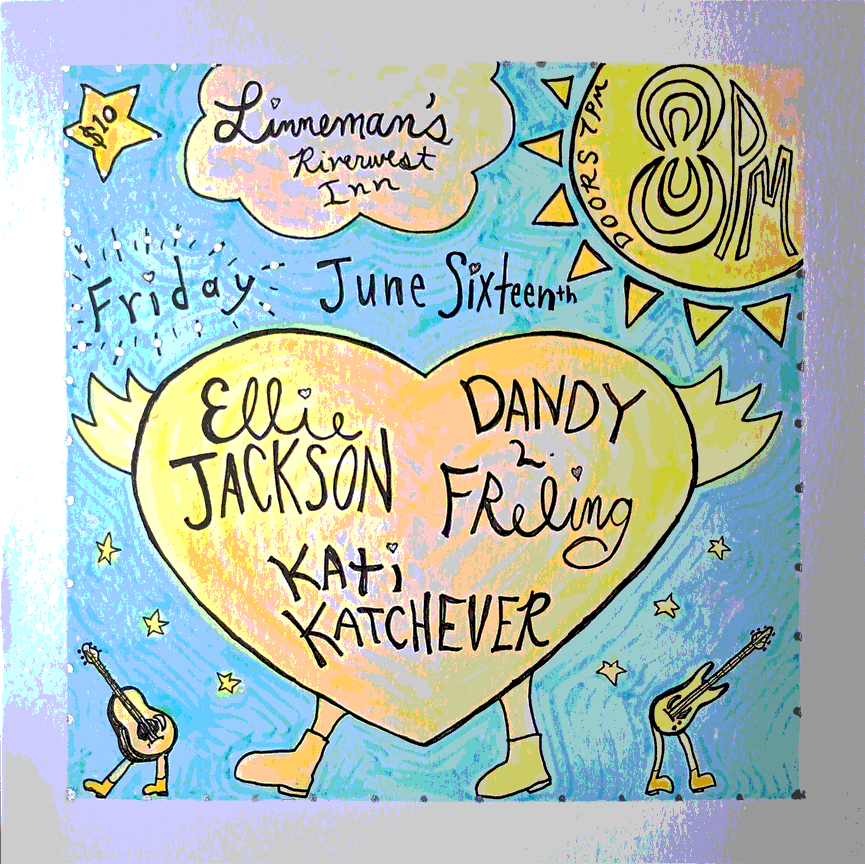 $10
Linneman's
Riverwest
Inn
8PM
DOORS 7PM
Friday June Sixteenth
Ellie
JACKSON
DANDY
FReling
KAti
KATCHEVER